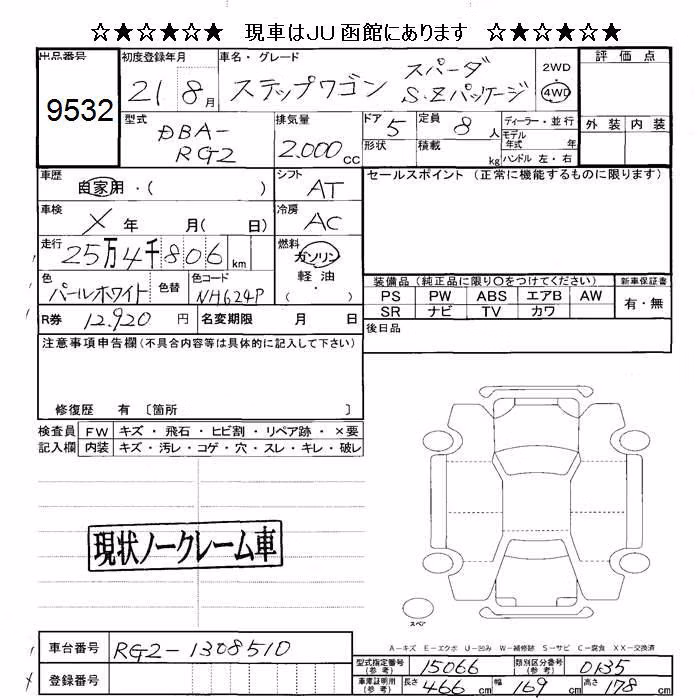 ☆★☆★☆★☆ 現車はJU函館にあります ☆★☆★☆★☆
出品番号 初度登録年月 車名・グレード 2WD 評価点
9532 21 8月 ステップワゴン スパーダ S.Zパッケージ 4WD
型式 排気量 ドア 定員 ディーラー・並行 外装 内装
DBA-RG2 2.000cc 5 8人 モデル年式 年
形状 積載 kg ハンドル 左・右
車歴 シフト セールスポイント (正常に機能するものに限ります)
自家用・( ) AT
車検 冷房
X 年 月( 日) AC
走行 燃料
25万4千806km ガソリン
軽・油
( )
色 色替 色コード 装備品 (純正品に限り〇をつけてください) 新車保証書
パールホワイト NH624P PS PW ABS エアB AW 有・無
SR ナビ TV カワ
R券 12.920 円 名変期限 月 日 後日品
注意事項申告欄(不具合内容等は具体的に記入して下さい)
修復歴 有 〔箇所 〕
検査員 FW キズ・飛石・ヒビ割・リペア跡・×要
記入欄 内装 キズ・汚レ・コゲ・穴・スレ・キレ・破レ
現状ノークレーム車
スペア
A-キズ E-エクボ U-凹み W-補修跡 S-サビ C-腐食 XX-交換済
車台番号 RG2-1308510
登録番号
型式指定番号(参考) 15066 類別区分番号(参考) 0135
車庫証明用(参考) 長さ 466cm 幅 169cm 高さ 178cm